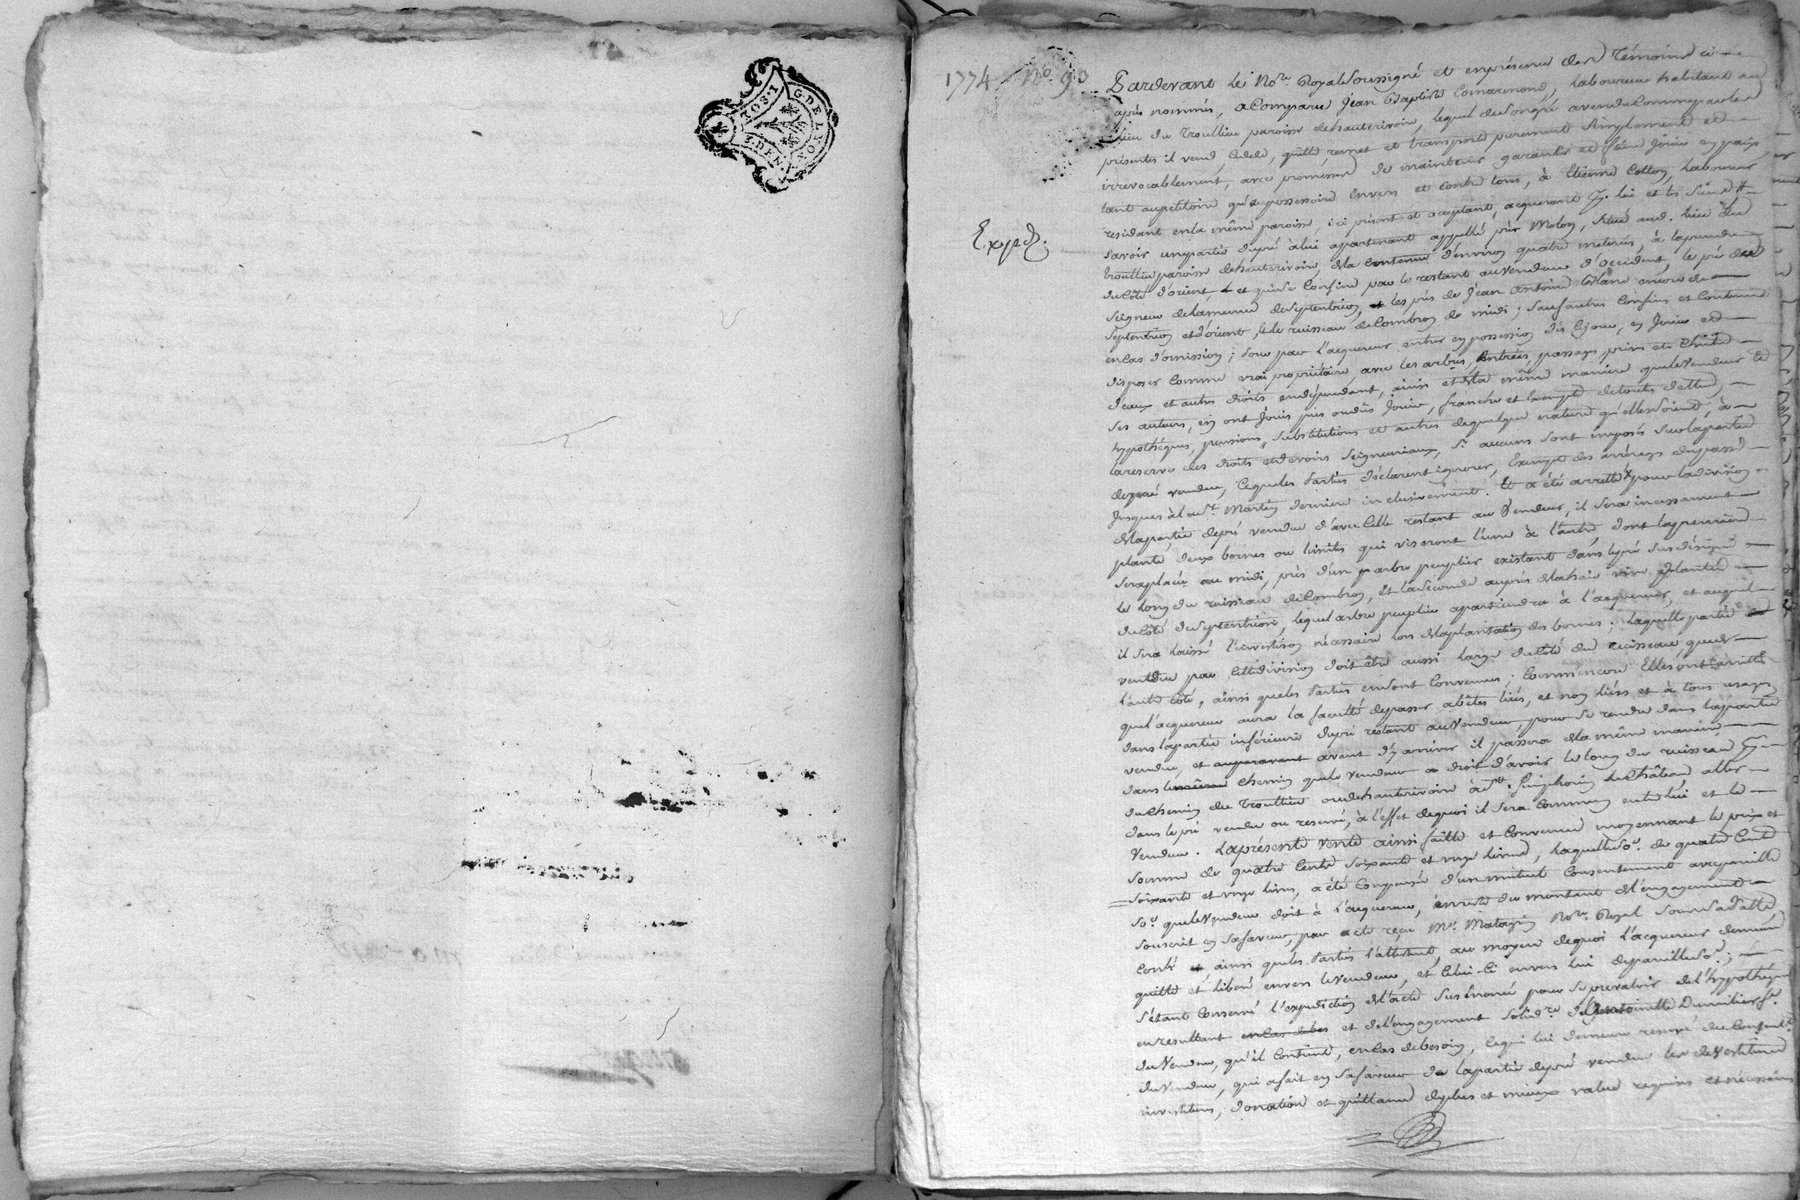 G. DE LYON
1774 No. 93
Pardevant Le No.re Royal Soussigné et en présence des Témoins ci
après nommés, a Comparu Jean Baptiste Laboureur habitant au
lieu du Troullieu paroisse de hauterivoire, lequel de Son gré a vendu Comme par les
présentes il vend Cede, quitte, remet et transporte purement Simplement et
irrevocablement, avec promesse de maintenir garantir et faire Jouir en paix
tant au petitoire qu'au possessoire Envers et Contre tous, à Etienne Collon, Laboureur
residant en la même paroisse, ici présent et acceptant, acquerant p.r lui et les Siens
Exped.
Savoir une partie de pré à lui apartenant appellé prés Molon, Situé aud. lieu du
troullieu paroisse de hauterivoire, de la Contenue d'environ quatre meterés, à la prendre
du Coté d'orient, et qui Se Confine par le restant au Vendeur d'occident, le pré du
Seigneur de Septentrion, les prés de Jean Antoine Blanc encore de
Septentrion et d'orient, & le ruisseau de Combron de midi; Sauf autres Confins et Contenue
en Cas d'omission; pour par l'acquereur entrer en possession dès Ce jour, en Jouir et
disposer Comme vrai propriétaire avec les arbres, Entrées, passages prises et Chûte
d'eaux et autres droits en dépendant, ainsi et de la même maniere que le Vendeur et
Ses auteurs, en ont Joui pus ou dus Jouir, franche et Exempte de toutes dettes,
hypothéques, pensions, Substitutions et autres de quelque nature qu'elles Soient, à
la reserve des droits et devoirs Seigneuriaux, Si aucuns Sont imposés Sur la partie
de pré vendue, Ce que les Parties déclarent ignorer, Exempte des arrérages du passé
Jusques à la St. Martin derniere inclusivement. Et a été arretté pour la division
de la partie de pré vendue d'avec Celle restant au Vendeur, il Sera incessament
planté deux bornes ou limites qui viseront l'une à l'autre, dont la premiere
Sera placée au midi, près d'un arbre peuplier existant dans le pré Sus désigné
le long du ruisseau de Combron, Et la Seconde auprés de la haie vive plantée
du Coté du Septentrion, lequel arbre peuplier apartiendra à l'acquereur, et auquel
il Sera laissé necessaire lors de la plantation des bornes; Laquelle partie
vendue par Cette division doit être aussi large du Coté du ruisseau que de
l'autre Coté, ainsi que les Parties en Sont Convenues; Comm'encore Elles ont arretté
que l'acquereur aura la faculté de passer à bêtes liés, et non liés et à tous usages
dans la partie inférieure de pré restant au Vendeur, pour Se rendre dans la partie
vendue, et auparavant avant d'y arriver il passera de la même maniere
dans le même Chemin que le Vendeur a droit d'avoir le long du ruisseau
du Chemin du Troullieu ou de hauterivoire à St. Simphorien le Château aller
dans le pré vendu ou reservé, à l'effet de quoi il Sera Commun entre lui et le
Vendeur. La présente vente ainsi faitte et Convenue moyennant le prix et
Somme de quatre Cents Soixante et onze Livres, Laquelle So.e de quatre Cents
Soixante et onze livres, a été Compensée d'un mutuel Consentement avec pareille
So.e que le Vendeur doit à l'acquereur, en reste du montant de l'engagement
Souscrit en Sa faveur, par acte reçu M.e No.re Royal
ainsi que les Parties l'attestent, au moyen de quoi l'acquereur demeure
quitte et libéré envers le vendeur, et Celui-Ci envers lui de pareille So.e;
S'étant Conservé l'expedition de l'acte Sus énoncé pour Se prevaloir de l'hypothéque
en resultant en Cas de bes et de l'engagement Solid.re de
du Vendeur, qu'il Contient, en Cas de besoin, Ce qui lui demeure reservé du Consent.t
du Vendeur, qui a fait en Sa faveur de la partie de pré vendue les devestitures
investitures, donation et quittance de plus et mieux value requises et nécessaires